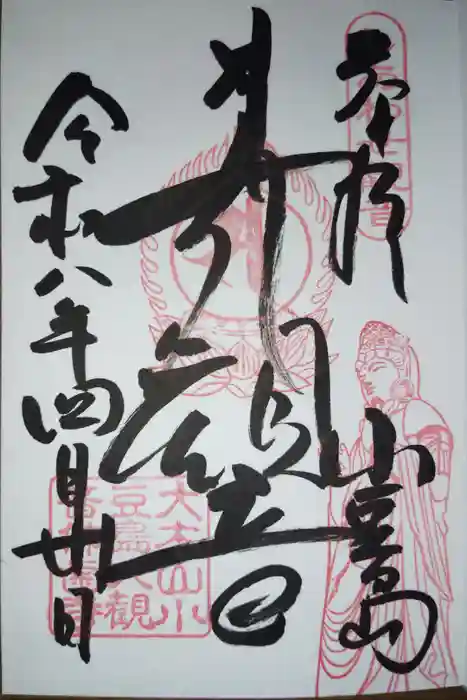 奉拝
小豆島
観音
令和八年四月廿日
大本山小
豆島大観
音佛歯寺